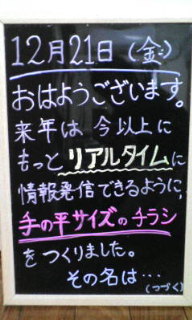 12月21日(金)
おはようございます。
来年は今以上に
もっとリアルタイムに
情報発信できるように、
手の平サイズのチラシ
をつくりました。
その名は…
(つづく)